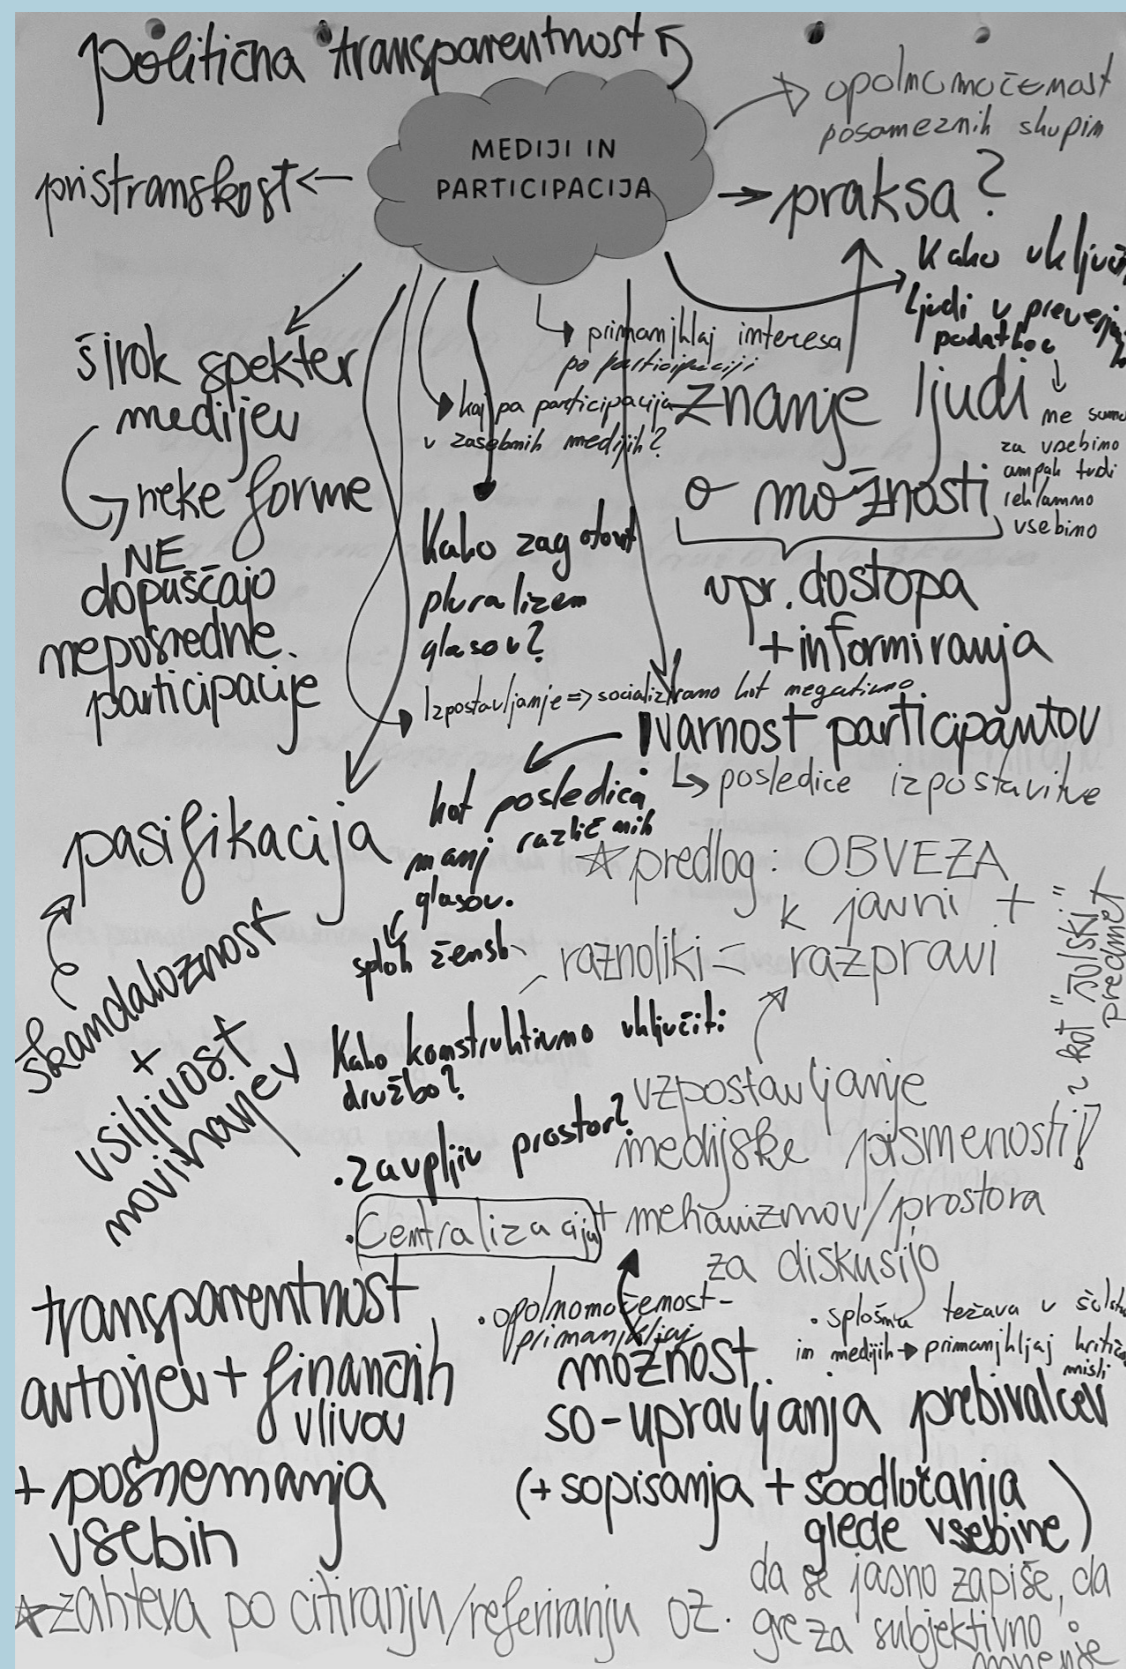 politična transparentnost
MEDIJI IN
PARTICIPACIJA
opolnomočenost
posameznih skupin
pristranskost
praksa?
Kako vključ
ljudi v
podatkov
ne samo
za vsebino
ampak tudi
reklamno
vsebino
širok spekter
medijev
neke forme
NE
dopuščajo
neposredne
participacije
primanjkljaj interesa
po participaciji
kaj pa participacija
v zasebnih medijih?
znanje ljudi
o možnosti
vpr. dostopa
+ informiranja
Kako zagotovit
pluralizem
glasov?
Izpostavljanje => socializirano kot negativno
varnost participantov
posledice izpostavitve
kot posledica
manj različnih
glasov.
sploh žensk
pasifikacija
škandaloznost
+
vsiljivost
novinarjev
predlog: OBVEZA
k javni +
raznoliki razpravi
kot "šolski"
predmet
Kako konstruktivno vključiti
družbo?
• zaupljiv prostor?
• Centralizacija
vzpostavljanje
medijske pismenosti!
+ mehanizmov/prostora
za diskusijo
• opolnomočenost -
primanjkljaj
• splošna težava v
in medijih → primanjkljaj
misli
transparentnost
avtorjev + finančnih
vlivov
+ posnemanja
vsebin
možnost
so-upravljanja prebivalcev
(+ sopisanja + soodločanja
glede vsebine)
zahteva po citiranju/referiranju oz.
da se jasno zapiše, da
gre za subjektivno
mnenje